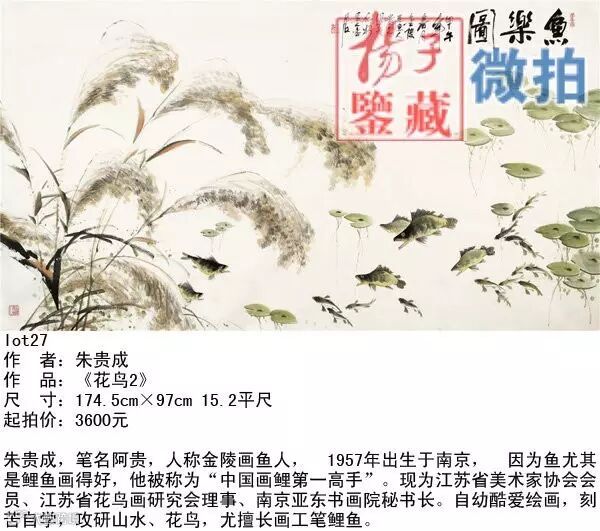 魚樂圖
揚子
鑒藏
微拍
lot27
作 者：朱贵成
作 品：《花鸟2》
尺 寸：174.5cm×97cm 15.2平尺
起拍价：3600元
朱贵成，笔名阿贵，人称金陵画鱼人， 1957年出生于南京， 因为鱼尤其
是鲤鱼画得好，他被称为“中国画鲤第一高手”。现为江苏省美术家协会会
员、江苏省花鸟画研究会理事、南京亚东书画院秘书长。自幼酷爱绘画，刻
苦自学，攻研山水、花鸟，尤擅长画工笔鲤鱼。